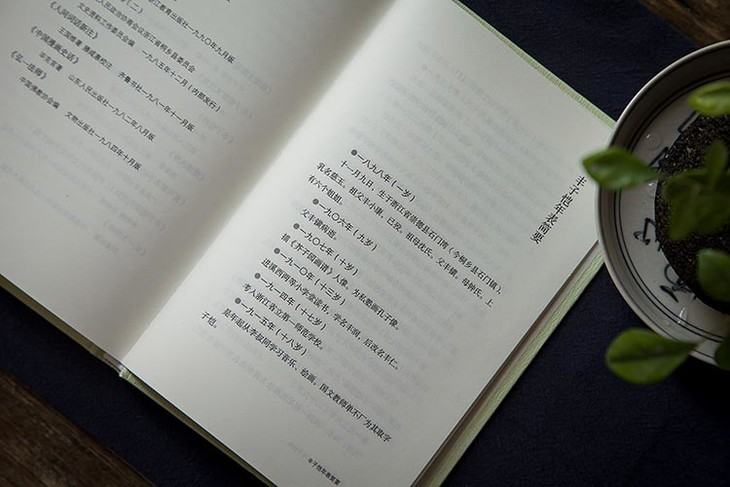 丰子恺年表简要
●一八九八年（一岁）
十一月九日，生于浙江省崇德县石门湾（今桐乡县石门镇）。
乳名慈玉。祖父丰小康，已殁。祖母沈氏，父丰鐄，母钟氏。上
有六个姐姐。
●一九〇六年（九岁）
父丰鐄病逝。
●一九〇七年（十岁）
描《芥子园画谱》人像。为私塾画孔子像。
●一九一〇年（十三岁）
进溪西两等小学堂读书，学名丰润，后改名丰仁。
●一九一四年（十七岁）
考入浙江省立第一师范学校。
●一九一五年（十八岁）
是年起从李叔同学习音乐、绘画。国文教师单不厂为其取字
子恺。
丰子恺年表简要
教育出版社一九九〇年九月版
（二）
人民政协会议浙江省桐乡县委员会
文史资料工作委员会编 一九八五年十二月（内部发行）
《人间词话新注》
王国维著 滕咸惠校注 齐鲁书社一九八一年十一月版
《中国漫画史话》
毕克官著 山东人民出版社一九八二年八月版
《弘一法师》
中国佛教协会编 文物出版社一九八四年十月版